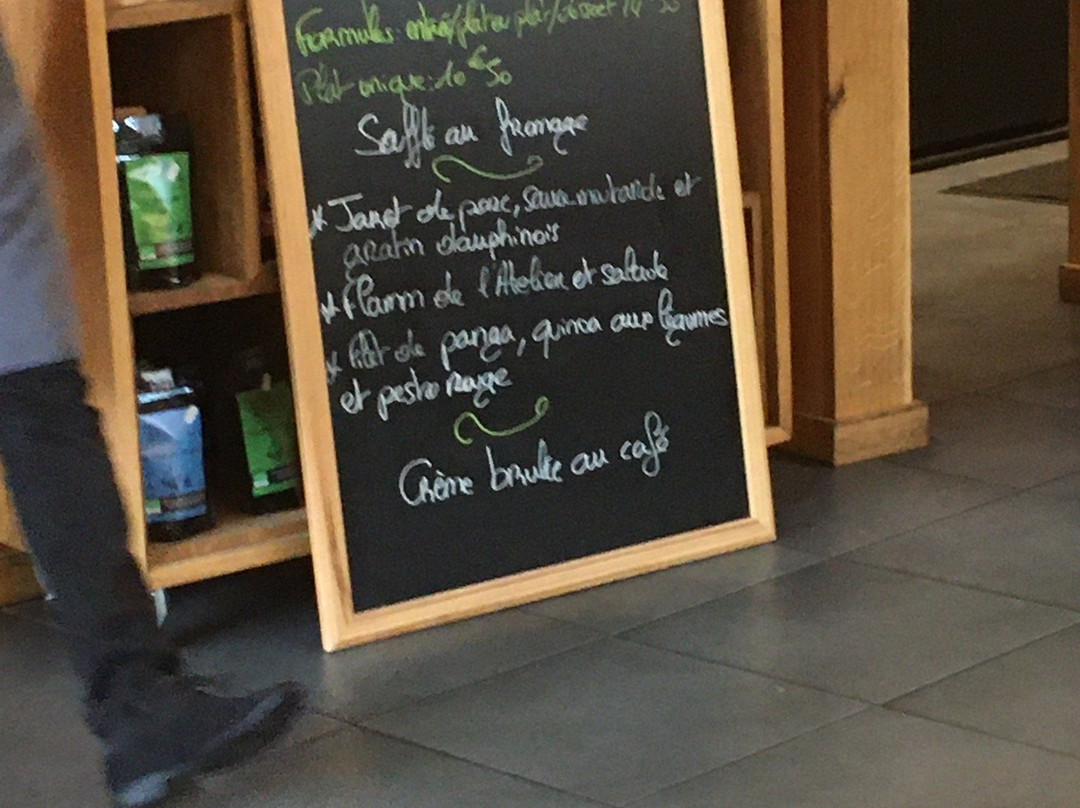 Formules: entrée/plat ou plat/dessert 14 € 50
Plat unique: 10 € 50
Soufflé au fromage
* Jarret de porc, sauce moutarde et
gratin dauphinois
* Flamm de l'Atelier et salade
* Filet de panga, quinoa aux légumes
et pesto rouge
Crème brulée au café